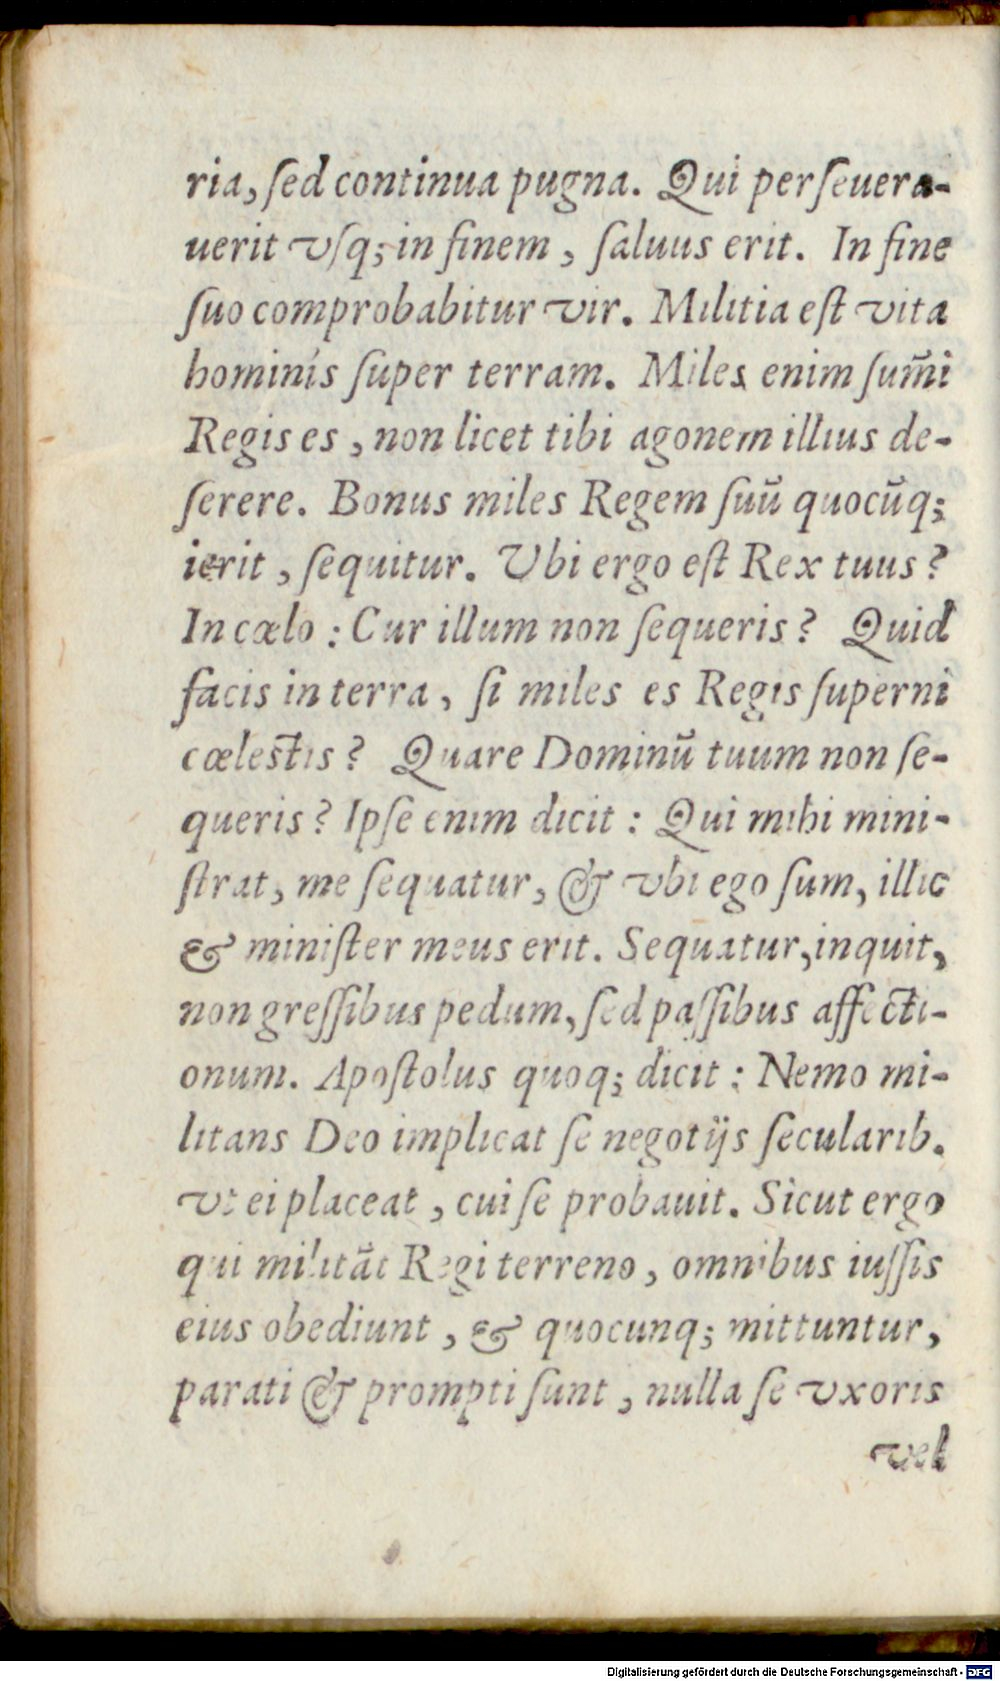 ria, ſed continua pugna. Qui perſeuera-
uerit vſq; in finem, ſaluus erit. In fine
ſuo comprobabitur vir. Militia eſt vita
hominis ſuper terram. Miles enim ſum̃i
Regis es, non licet tibi agonem illius de-
ſerere. Bonus miles Regem ſuũ quocũq;
ierit, ſequitur. Vbi ergo eſt Rex tuus?
In cœlo: Cur illum non ſequeris? Quid
facis in terra, ſi miles es Regis ſuperni
cœlestis? Quare Dominũ tuum non ſe-
queris? Ipſe enim dicit: Qui mihi mini-
ſtrat, me ſequatur, & vbi ego ſum, illic
& miniſter meus erit. Sequatur, inquit,
non greſſibus pedum, ſed paſſibus affecti-
onum. Apoſtolus quoq; dicit: Nemo mi-
litans Deo implicat ſe negotijs ſecularib.
vt ei placeat, cui ſe probauit. Sicut ergo
qui militãt Regi terreno, omnibus iuſſis
eius obediunt, & quocunq; mittuntur,
parati & prompti ſunt, nulla ſe vxoris
vel
Digitalisierung gefördert durch die Deutsche Forschungsgemeinschaft - DFG